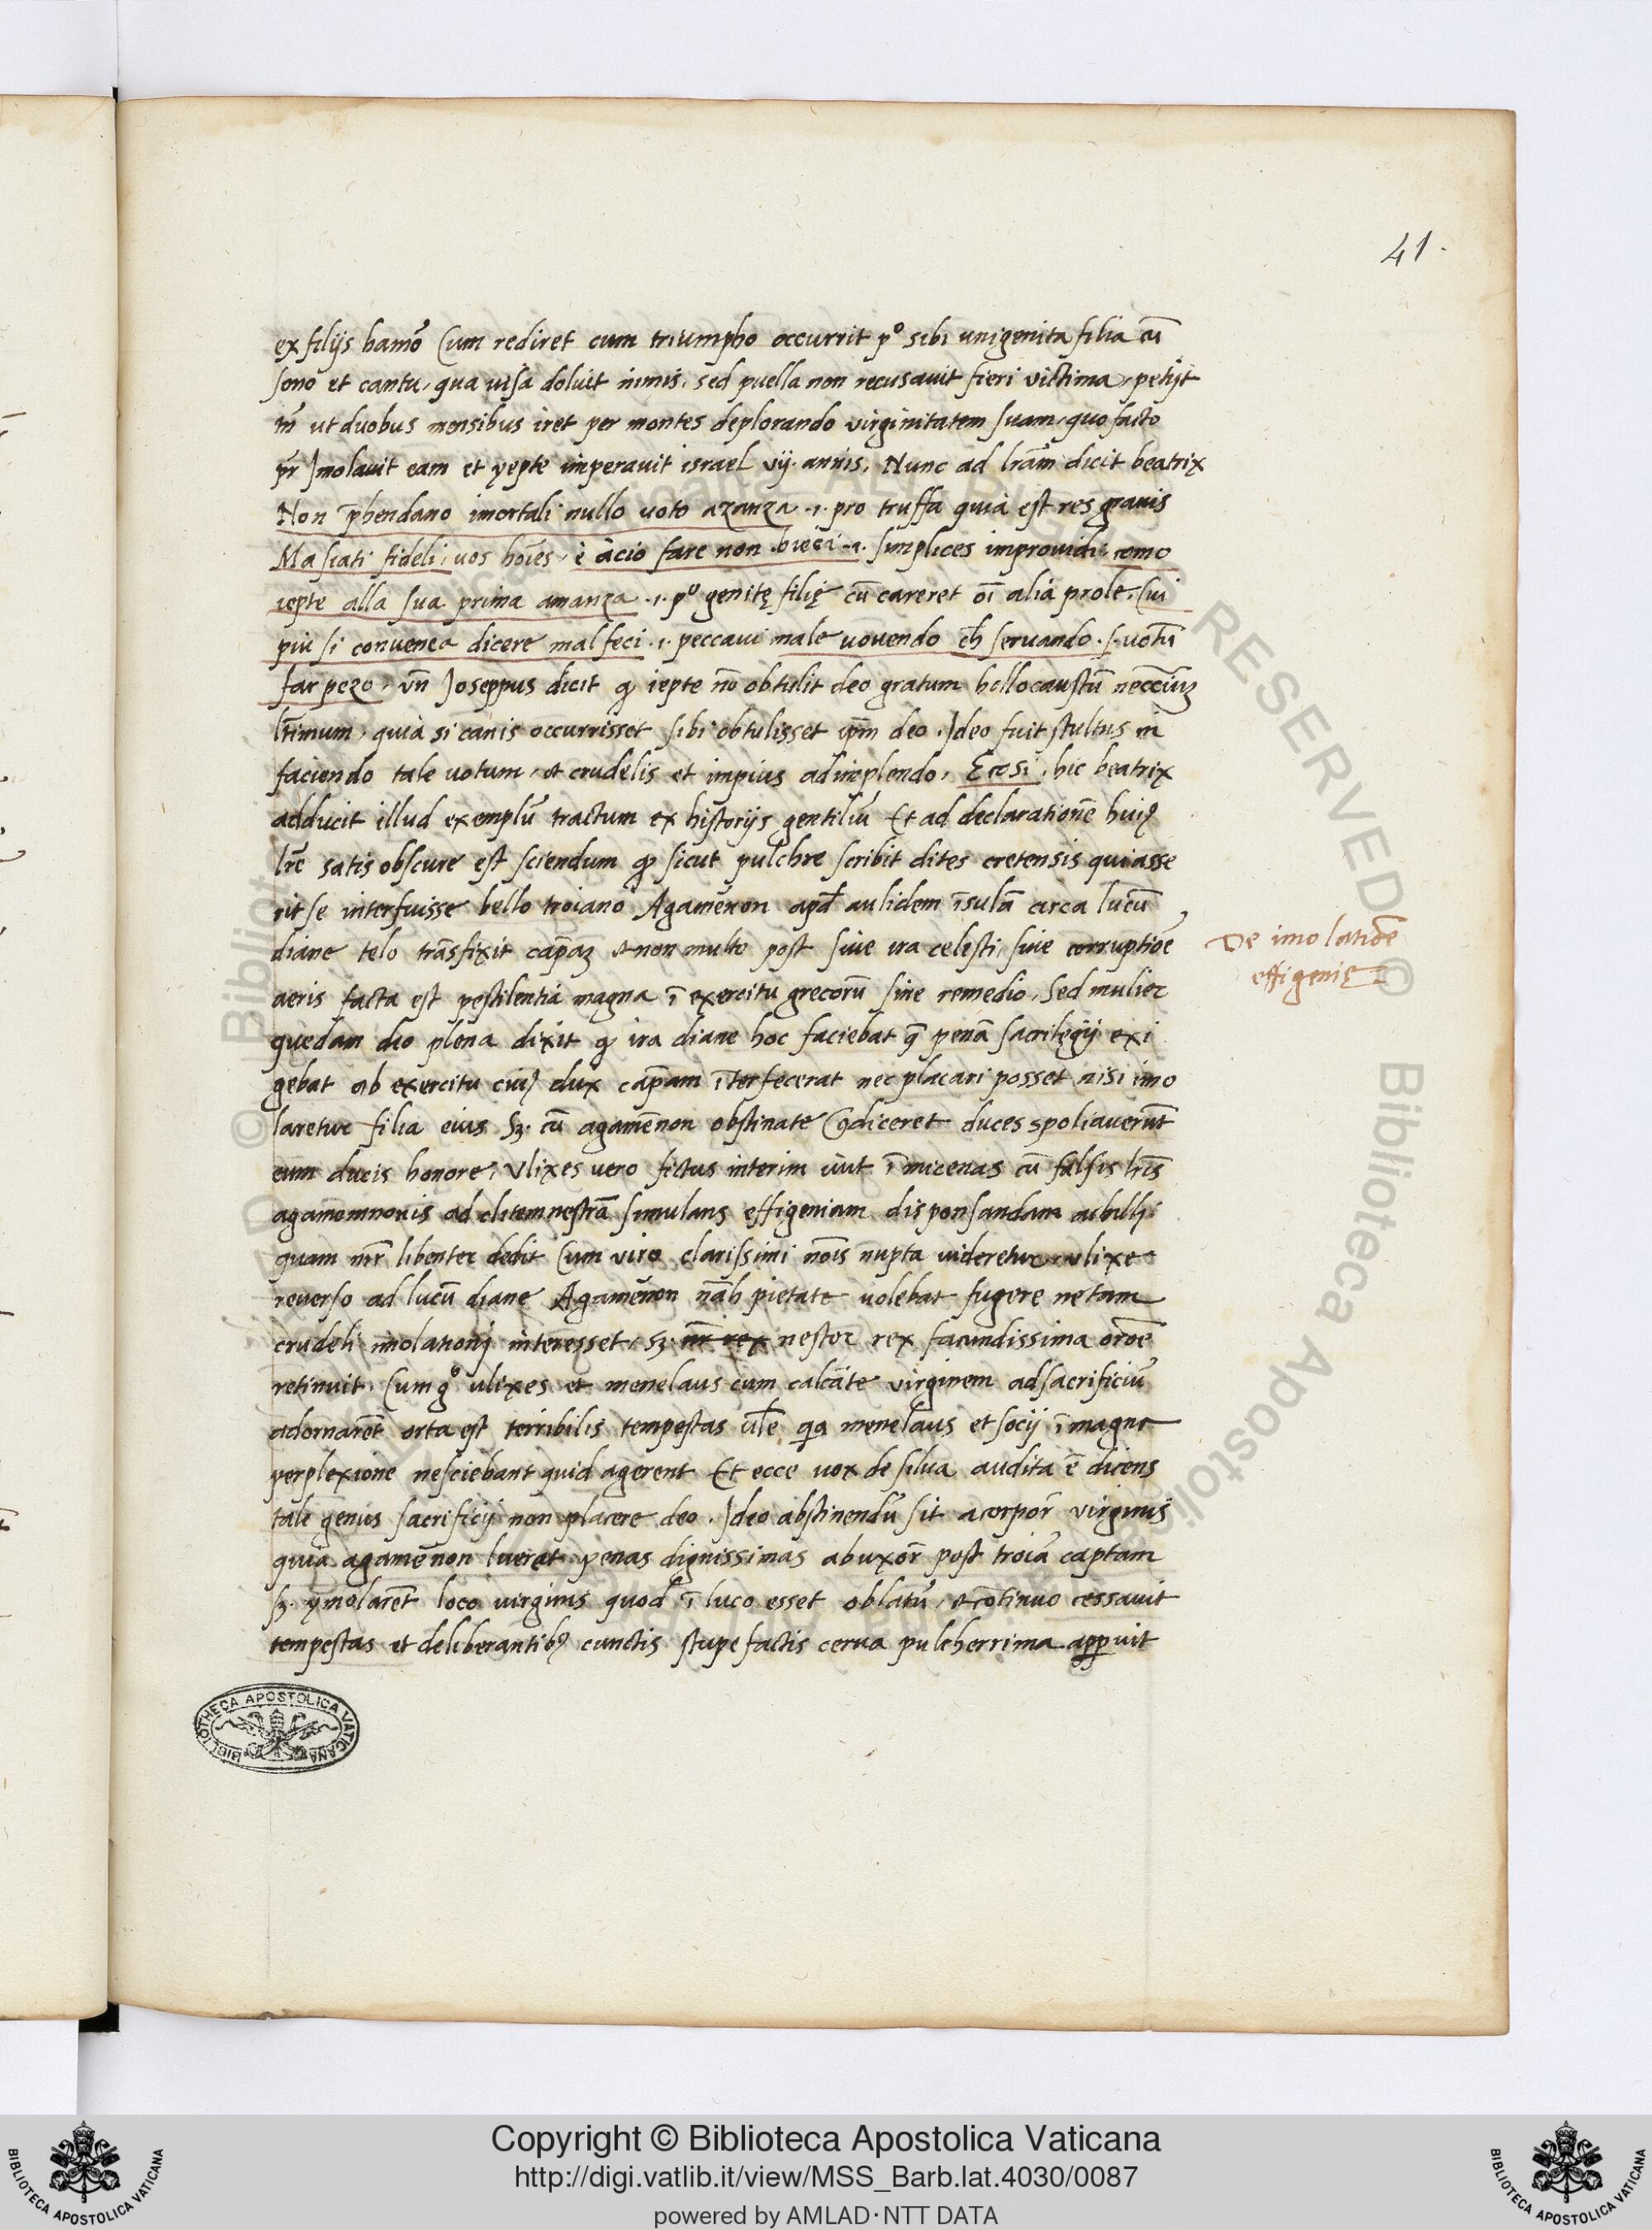 41.
ex filijs hamō Cum rediret cum triumpho occurrit pº sibi unigenita filia cū
sono et cantu, qua uisa doluit nimis, sed puella non recusauit fieri victima, petijt
tn̄ ut duobus mensibus iret per montes deplorando virginitatem suam, quo facto
pr̄ Jmolauit eam et yepte imperauit israel vij. annis, Nunc ad lrām dicit beatrix
Non p̄hendano imortali nullo uoto azanza .1. pro truffa quia est res grauis
Ma siati fideli, uos hoīes, è àcio fare non bieci .1. simplices improuidi, como
iepte alla sua prima amanza .1. pº genitę filię cū careret oī alia prole, Cui
piu si convenea dicere mal feci .1. peccaui male uouendo ch̄ seruando .s. uotū
far pezo, vn̄ Joseppus dicit ꝙ iepte nō obtulit deo gratum hollocaustū
ltīmum, quia si canis occurrisset sibi obtulisset ipm̄ deo. Jdeo fuit stultus in
faciendo tale uotum, et crudelis et impius adimplendo, Ecosi, hic beatrix
adducit illud exemplū tractum ex historijs gentiliū Et ad declarationē huiꝰ
lrē satis obscure est sciendum ꝙ sicut pulchre scribit dites cretensis qui asse
rit se interfuisse bello troiano Agamēnon apd̄ aulidem īsulā circa lucū
diane telo trāsfixit cap̄aꝫ et non multo post siue ira celesti, siue corruptiōe
De imolatiōe
effigenię
aeris facta est pestilentia magna ī exercitu grecorū sine remedio, Sed mulier
quedam dio plena dixit ꝙ ira diane hoc faciebat q̄ penā sacrilegij exi
gebat ab exercitu cuiꝰ dux cap̄am īterfecerat nec placari posset nisi imo
laretur filia eius Sꝫ. cū agamēnon obstinate ꝯdiceret duces spoliauerūt
eum ducis honore, Vlixes vero fictus interim iuit ī micenas cū falsis lrīs
agamemnonis ad clitemnestrā simulans effigeniam disponsandam achilli
quam mr̄ libenter dedit Cum viro clarissimi noīs nupta uideretur, vlixe
reuerso ad lucū diane Agamēnon nāb pietate uolebat fugere ne tam
crudeli immolationj interesset, sꝫ. mr̄ rex nestor rex facundissima orōe
retinuit, Cum gº ulixes et menelaus cum calcāte virginem ad sacrificiū
adornarēt orta est terribilis tempestas menelaus et socij ī magna
perplexione nesciebant quid agerent Et ecce uox de silua audita ē dicens
tale genus sacrificij non placere deo. Jdeo abstinendū sit a corpor̄ virginis
quia agamēnon lueret penas dignissimas ab uxor̄ post troiā captam
sꝫ. ymolarēt loco virginis quod ī luco esset oblatū, et cōtinuo cessauit
tempestas et deliberantibꝰ cunctis stupefactis cerua pulcherrima apparuit
BIBLIOTHECA APOSTOLICA VATICANA
Copyright © Biblioteca Apostolica Vaticana
http://digi.vatlib.it/view/MSS_Barb.lat.4030/0087
powered by AMLAD·NTT DATA
BIBLIOTECA APOSTOLICA VATICANA
BIBLIOTECA APOSTOLICA VATICANA